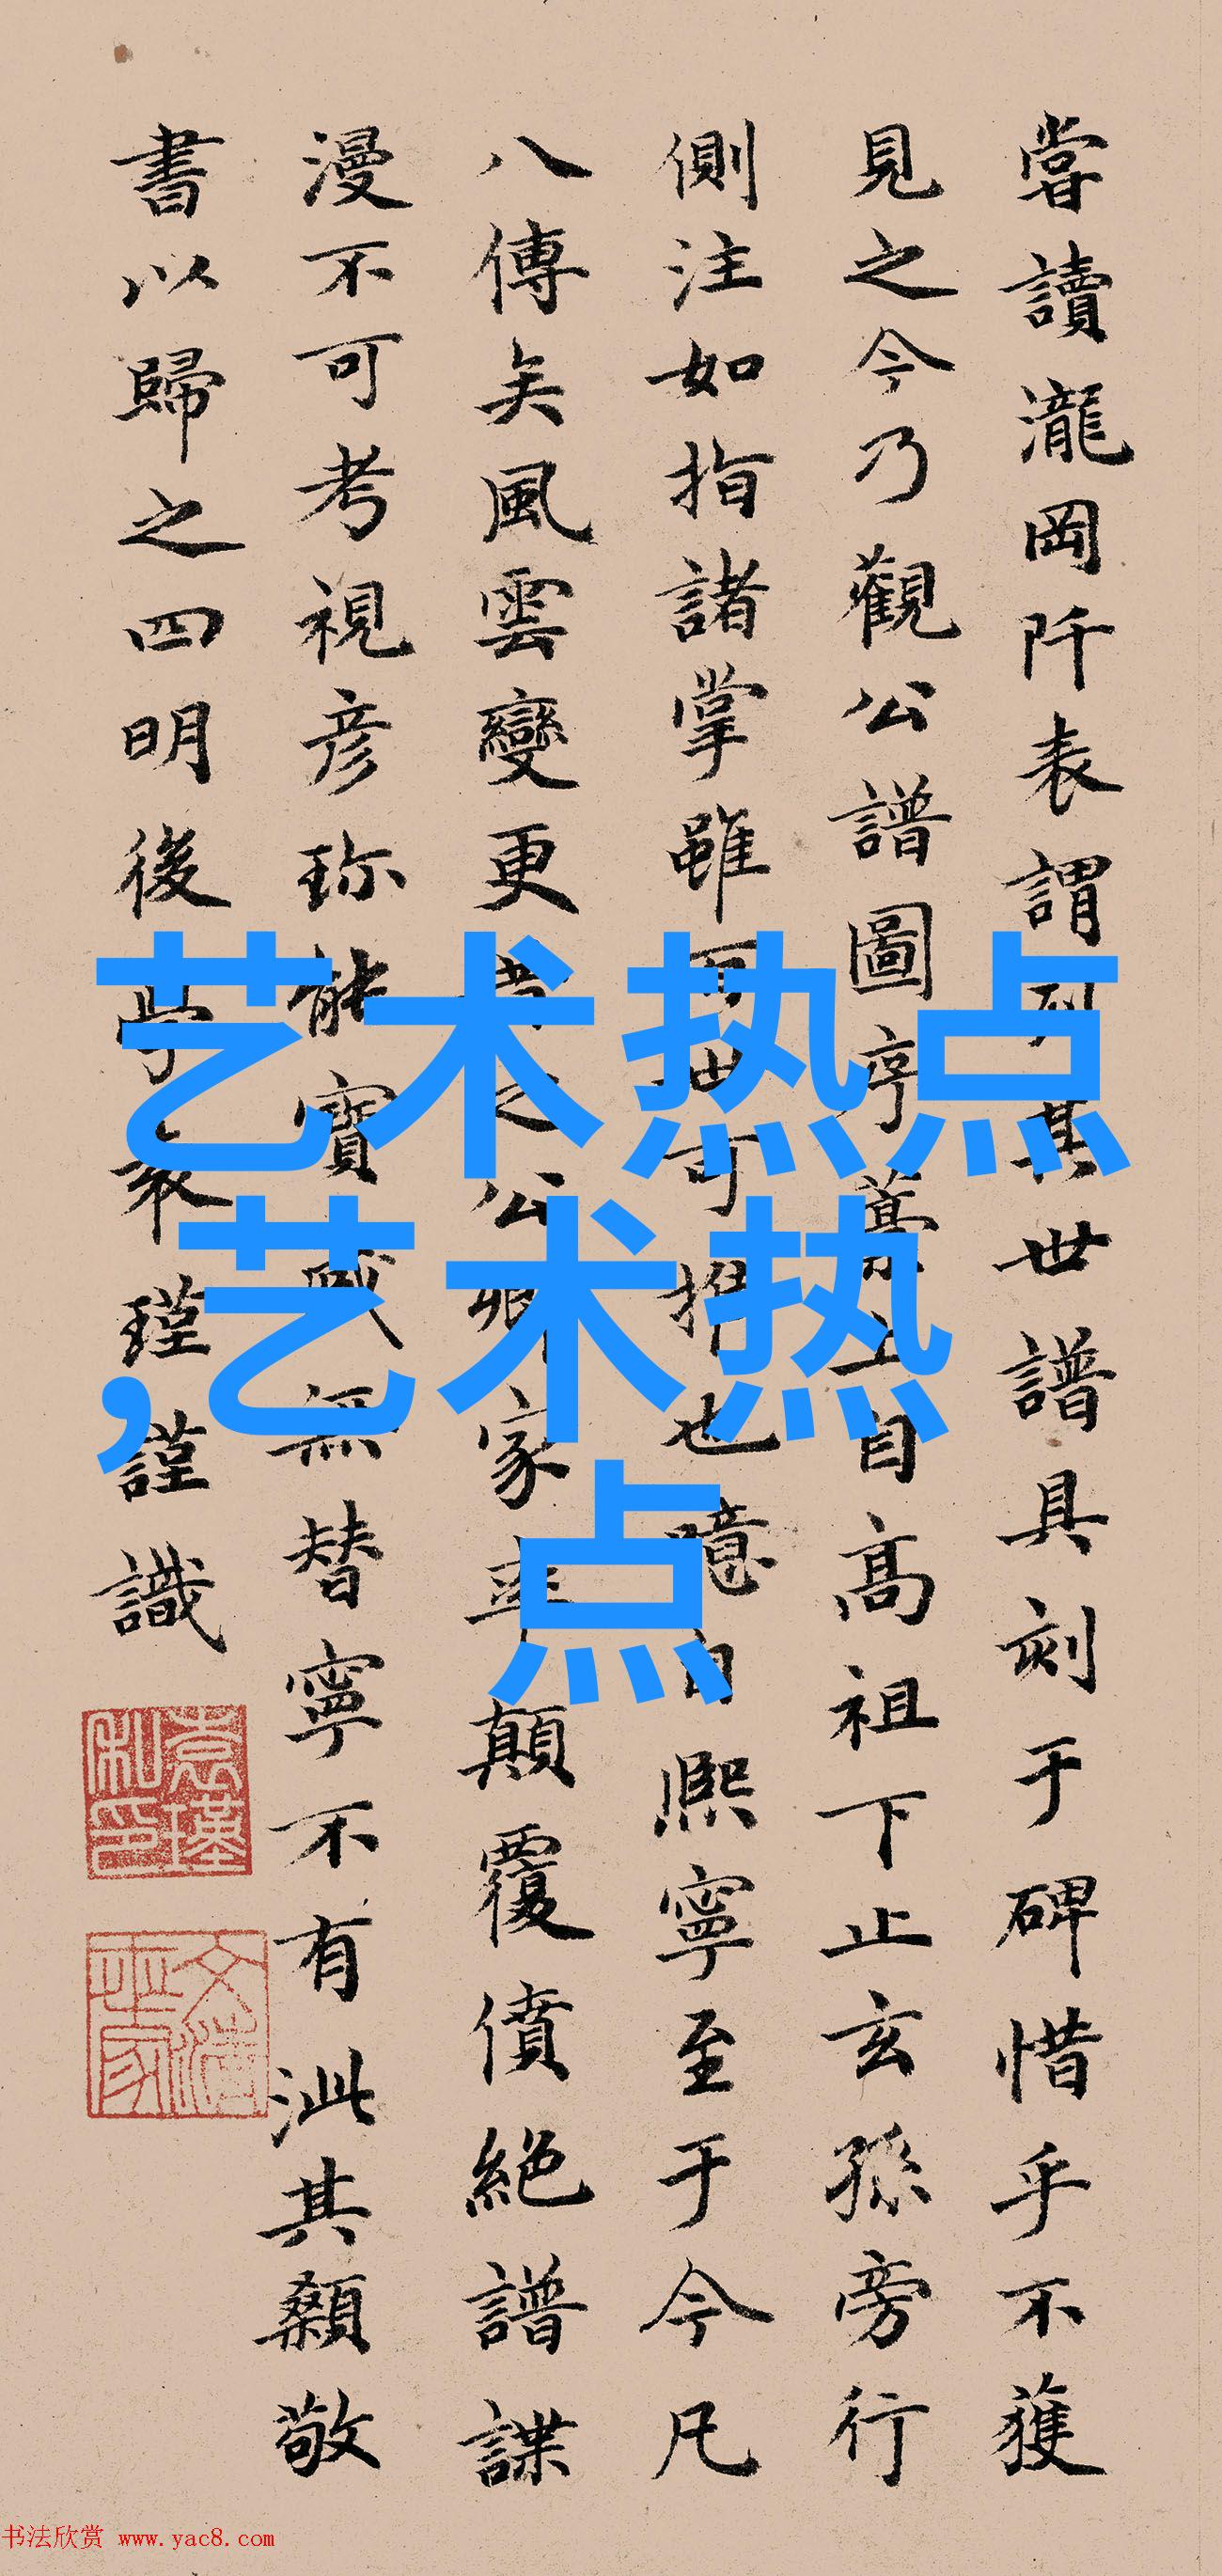 嘗讀瀧岡阡表謂列其世譜具刻于碑惜乎不獲
見之今乃觀公譜圖序藁上自高祖下止玄孫旁行
側注如指諸掌雖百世可推也噫自熙寧至于今凡
八傳矣風雲變更昔之公卿家率顛覆僨絕譜諜
漫不可考視彥珎能寶藏無替寧不有泚其顙敬
書以歸之四明後學袁瑾謹識
袁瑾私印
艺术热点
,艺术热
点
书法欣赏 www.yac8.com